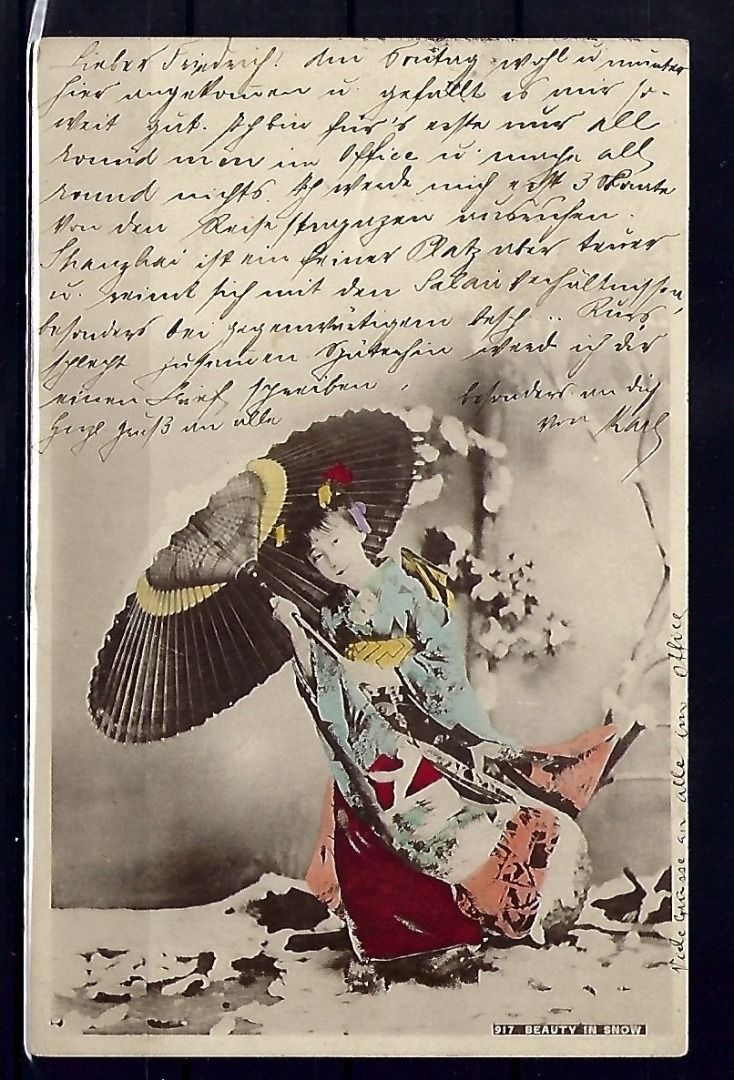 Lieber Friedrich! Am Sontag wohl u munter
hier angekom̄en u. gefällt es mir so-
weit gut. Ich bin für's erste nur all
round man im Office u. mache all
round nichts. Ich werde mich erst 3 Monate
von den Reisestrapazen ausruhen.
Shanghai ist ein feiner Platz aber teuer
u. reimt sich mit den Salairverhältnissen,
besonders bei gegenwärtigem Kurs,
schlecht zusam̄en. Späterhin werd ich dir
einen Brief schreiben,
Herzl Gruß an alle besonders an dich
von Karl
Viele Grüsse an alle im Office
917 BEAUTY IN SNOW